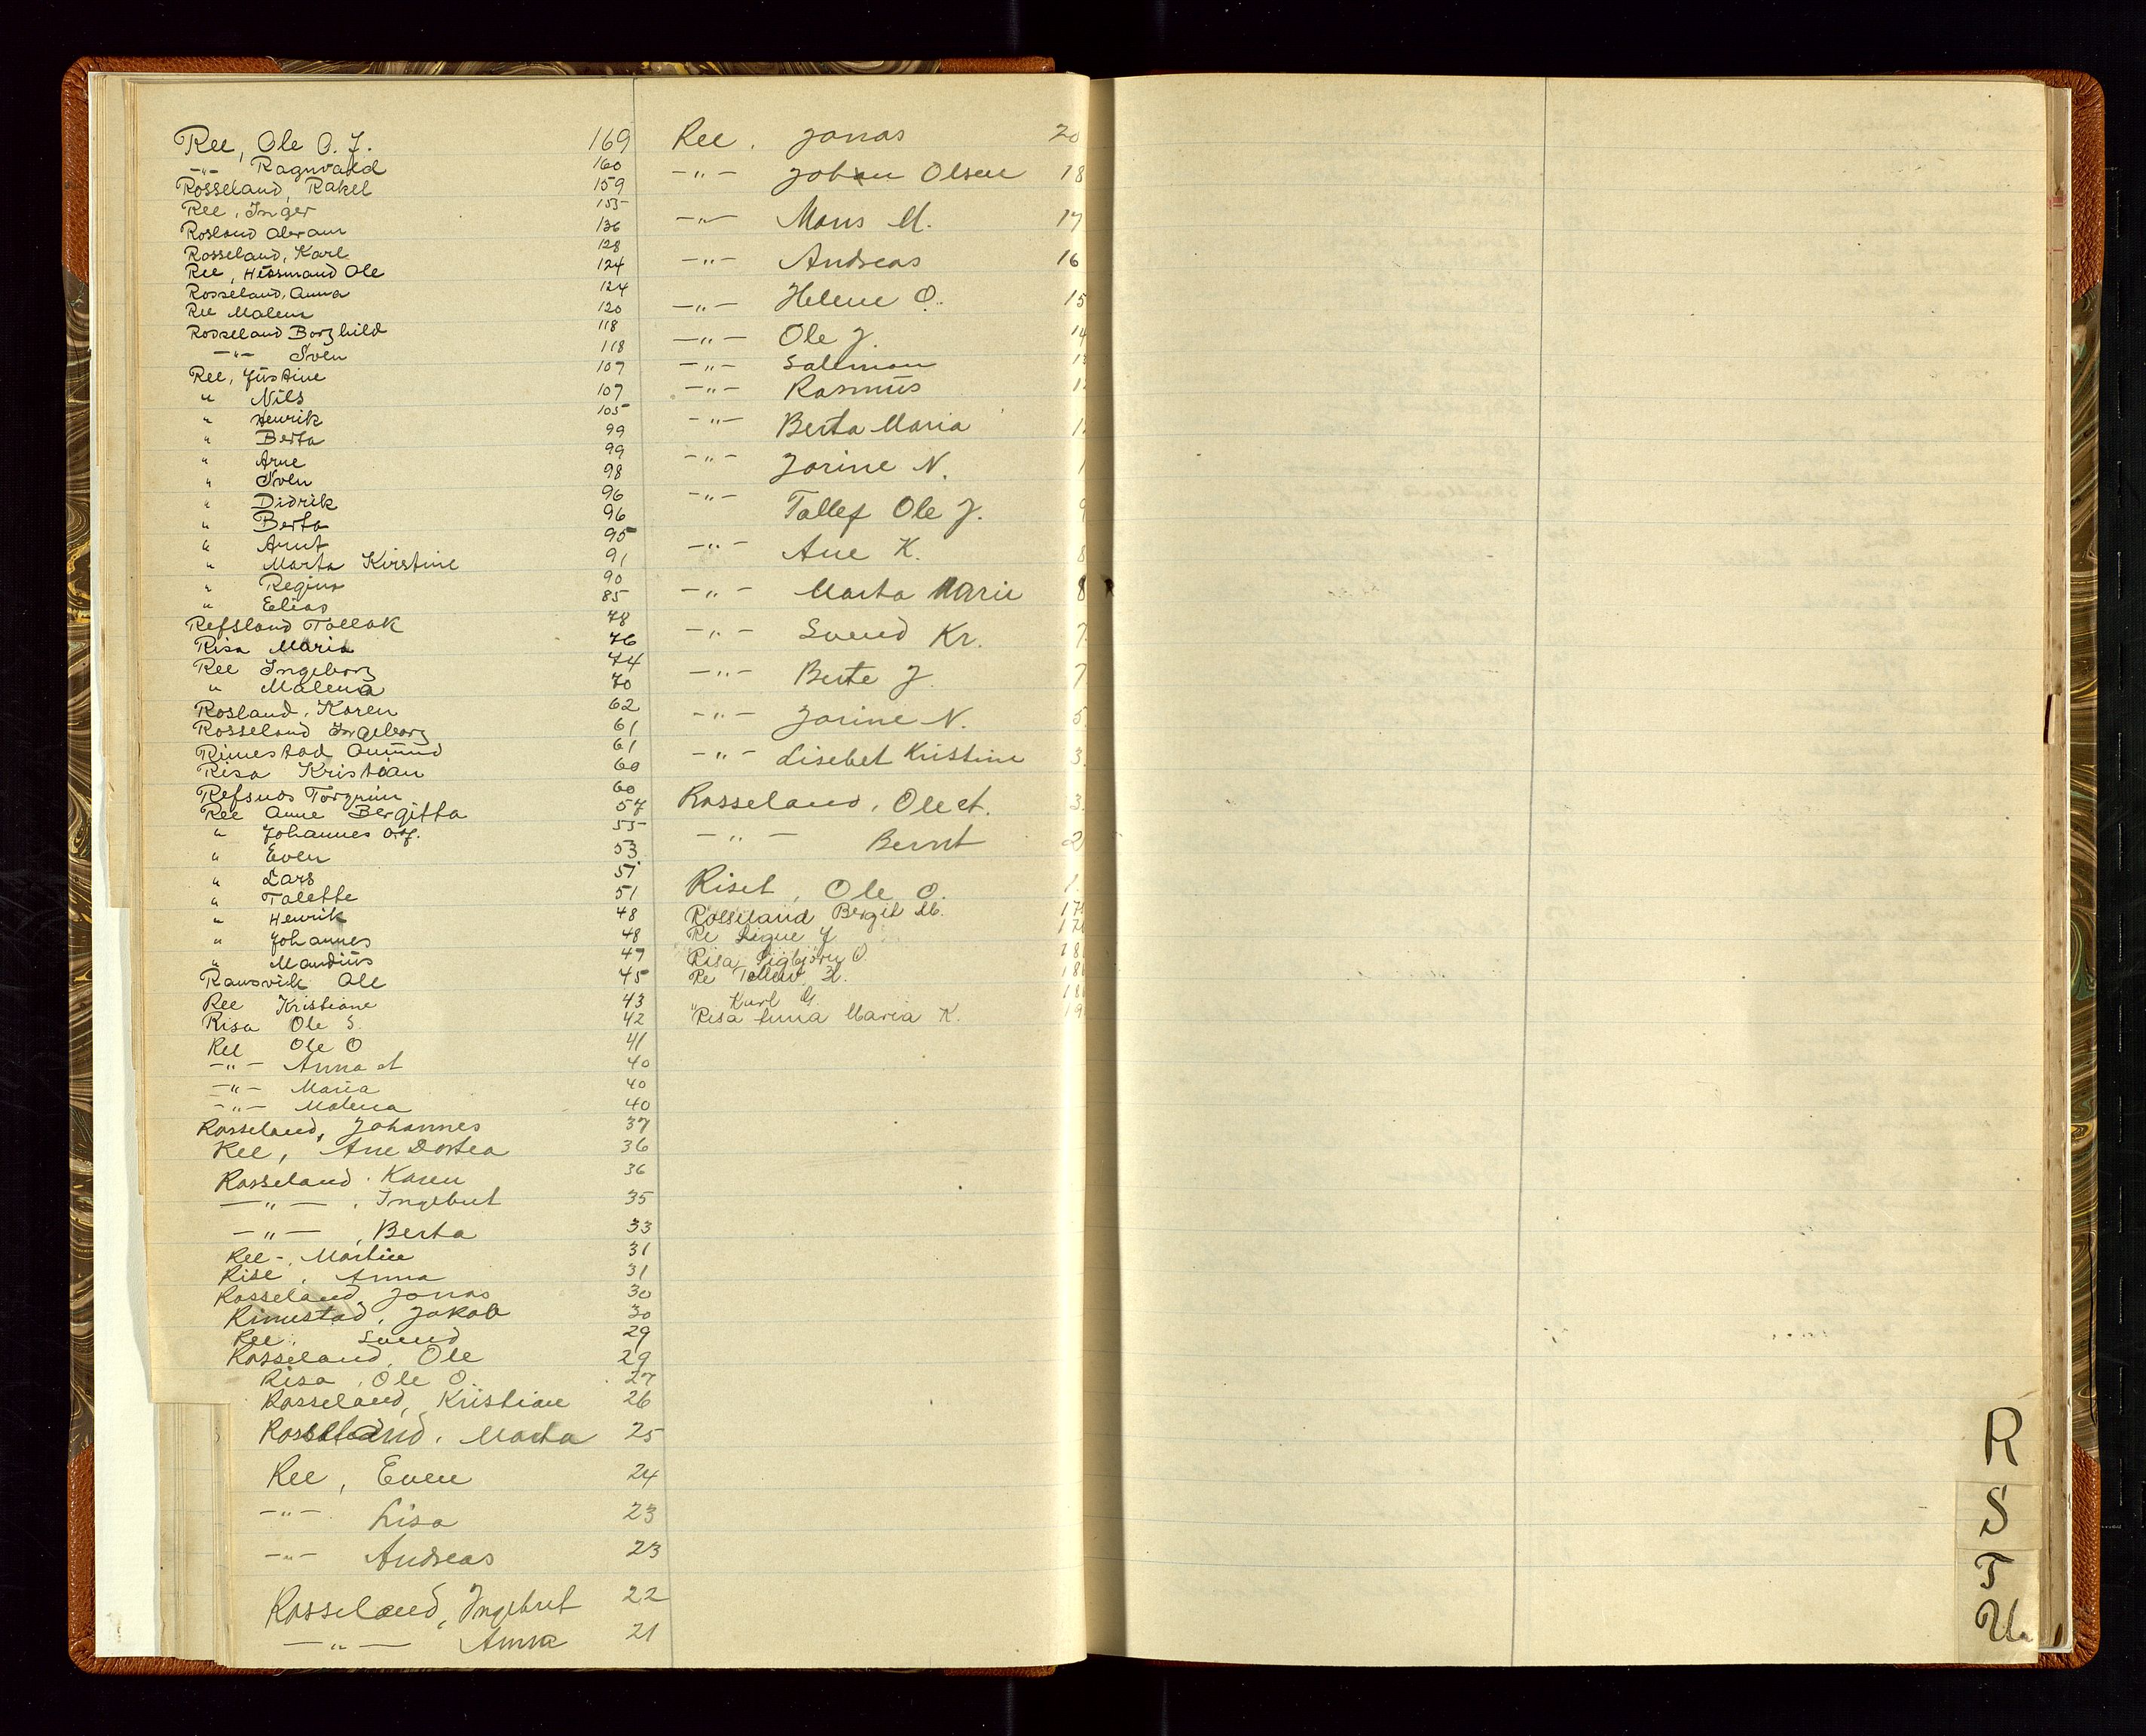 Ree, Ole O. J. 169
-"- Ragnvald 160
Rosseland, Rakel 159
Ree, Inger 155
Rosland Abram 136
Rosseland, Karl 128
Ree, Ole 124
Rosseland, Anna 124
Ree Malene 120
Rosseland Borghild 118
-"- Sven 118
Ree, Justine 107
" Nils 107
" Henrik 105
" Berta 99
" Arne 99
" Sven 98
" Didrik 96
" Berta 96
" Arnt 95
" Marta Kirstine 91
" Regina 90
" Elias 85
Refsland Tollak 78
Risa Maria 76
Ree Ingeborg 74
" Malena 70
Rosland, Karen 62
Rosseland Ingeborg 61
Rimestad Amund 61
Risa Kristian 60
Refsnes 60
Ree Anne Bergitta 57
" Johannes 55
" Even 53
" Lars 51
" Talette 51
" Henrik 48
" Johannes 48
" Mandius 47
Ramsvik Ole 45
Ree Kristiane 43
Risa Ole S. 42
Ree Ole O 41
-"- Anna A 40
-"- Maria 40
-"- Malena 40
Rosseland, Johannes 37
Ree, Ane Dortea 36
Rosseland. Karen 36
-"-, Ingebret 35
-"-, Berta 33
Ree-, Martine 31
Rise, Anna 31
Rosseland, Jonas 30
Rimestad, Jakob 30
Ree, Svend 29
Rosseland, Ole 29
Risa, Ole O. 27
Rosseland, Kristiane 26
Rosseland, Marta 25
Ree, Even 24
-"- Lisa 23
-"- Andreas 23
Rosseland, Ingebret 22
-"- Anna 21
Ree, Jonas 20
-"- Johan Olsen 18
-"- Mons M. 17
-"- Andreas 16
-"- Helene O. 15
-"- Ole J. 14
-"- Sallmon
-"- Rasmus
-"- Berta Maria
-"- Jorine N.
-"- Tallef Ole J. 9
-"- Ane K. 8
-"- Marta Marie 8
-"- Svend Kr. 7
-"- Berte J. 7
-"- Jorine N. 5
-"- Lisebet Kristine 3
Rosseland, Ole A. 3
-"- Bernt 2
Riset, Ole O. 1
Rosseland Bergit M.
Re Signe J
Risa Sigbjørn O
Re Tollev
" Karl G.
Risa Anna Maria K.
R
S
T
U